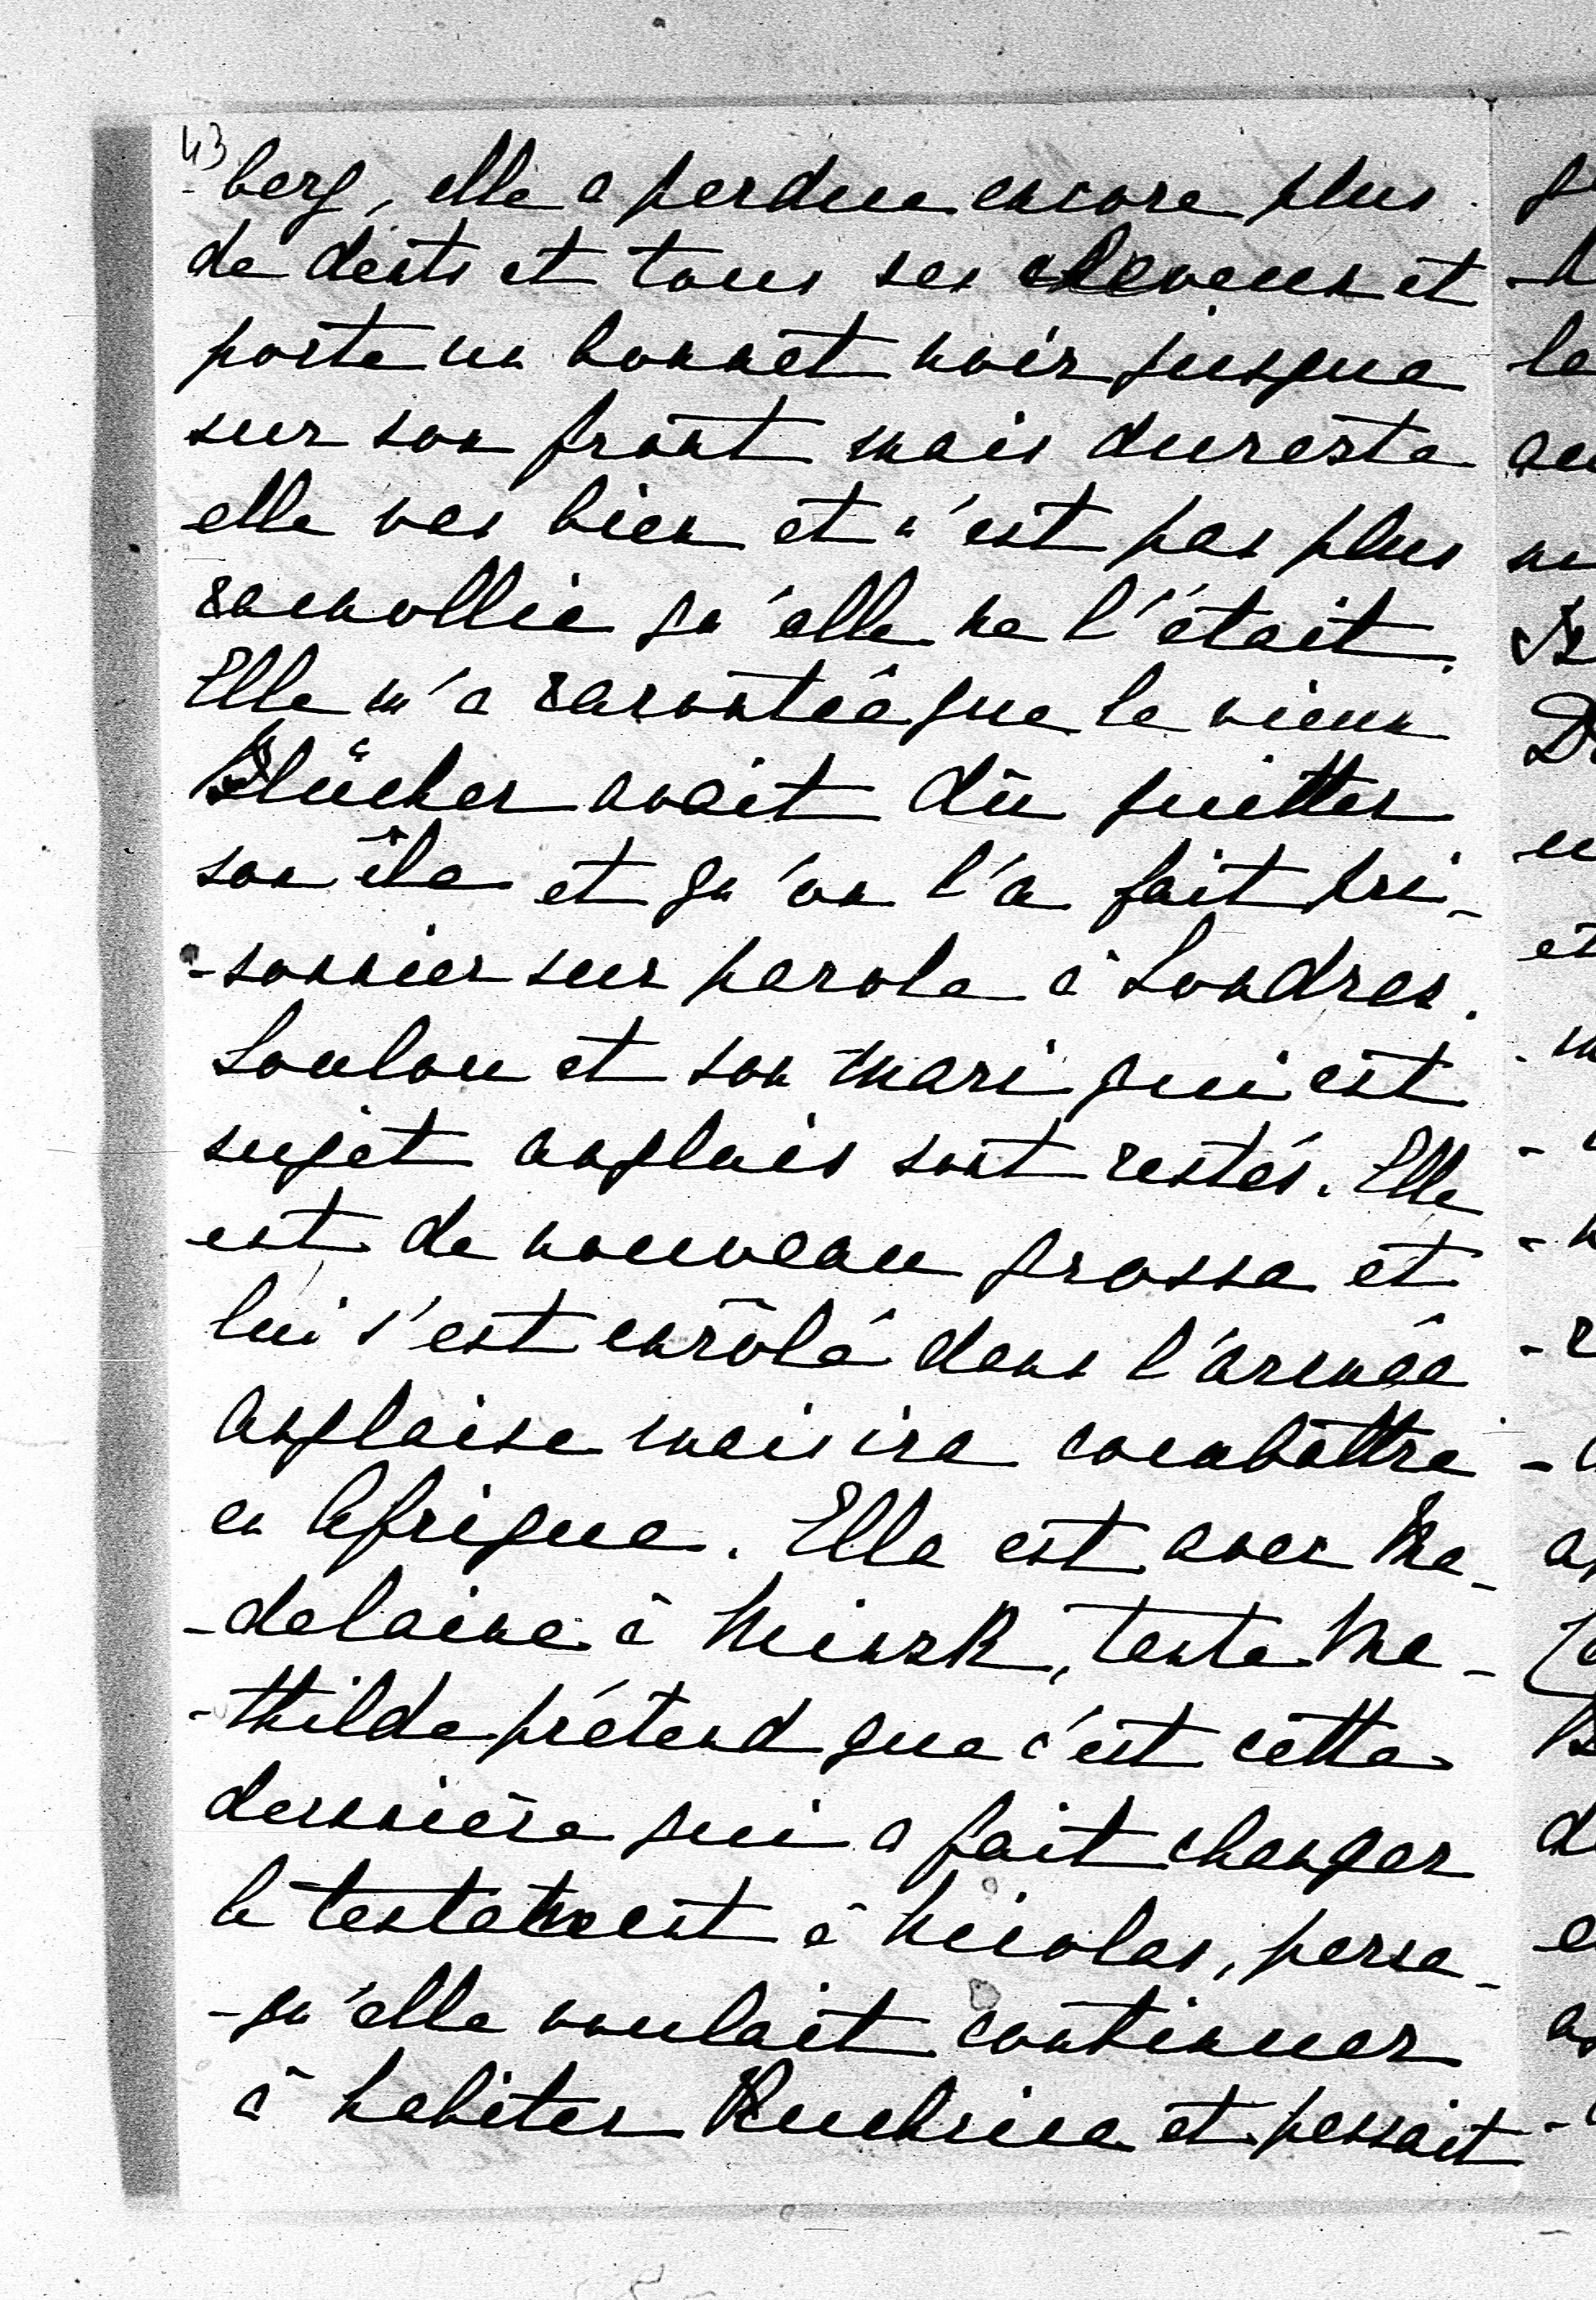 43
-berg, elle a perdue encore plus
de dents et tous ses cheveux et
porte un bonnet noir jusque
sur son front mais dureste
elle vas bien et n'est pas plus
ramollie qu'elle ne l'était.
Elle m'a racontée que le vieux
Blücher avait dû quitter
son île et qu'on l'a fait pri-
-sonnier sur parole à Londres.
Loulou et son mari qui est
sujet anglais sont restés. Elle
est de nouveau grosse et
lui s'est enrôlé dans l'armée
Anglaise mais ira combattre
en Afrique. Elle est avec Ma-
-delaine à Minsk, tante Ma-
-thilde prétend que c'est cette
dernière qui a fait changer
le testament à Nicolas, parce-
-qu'elle voulait continuer
à habiter et pensait